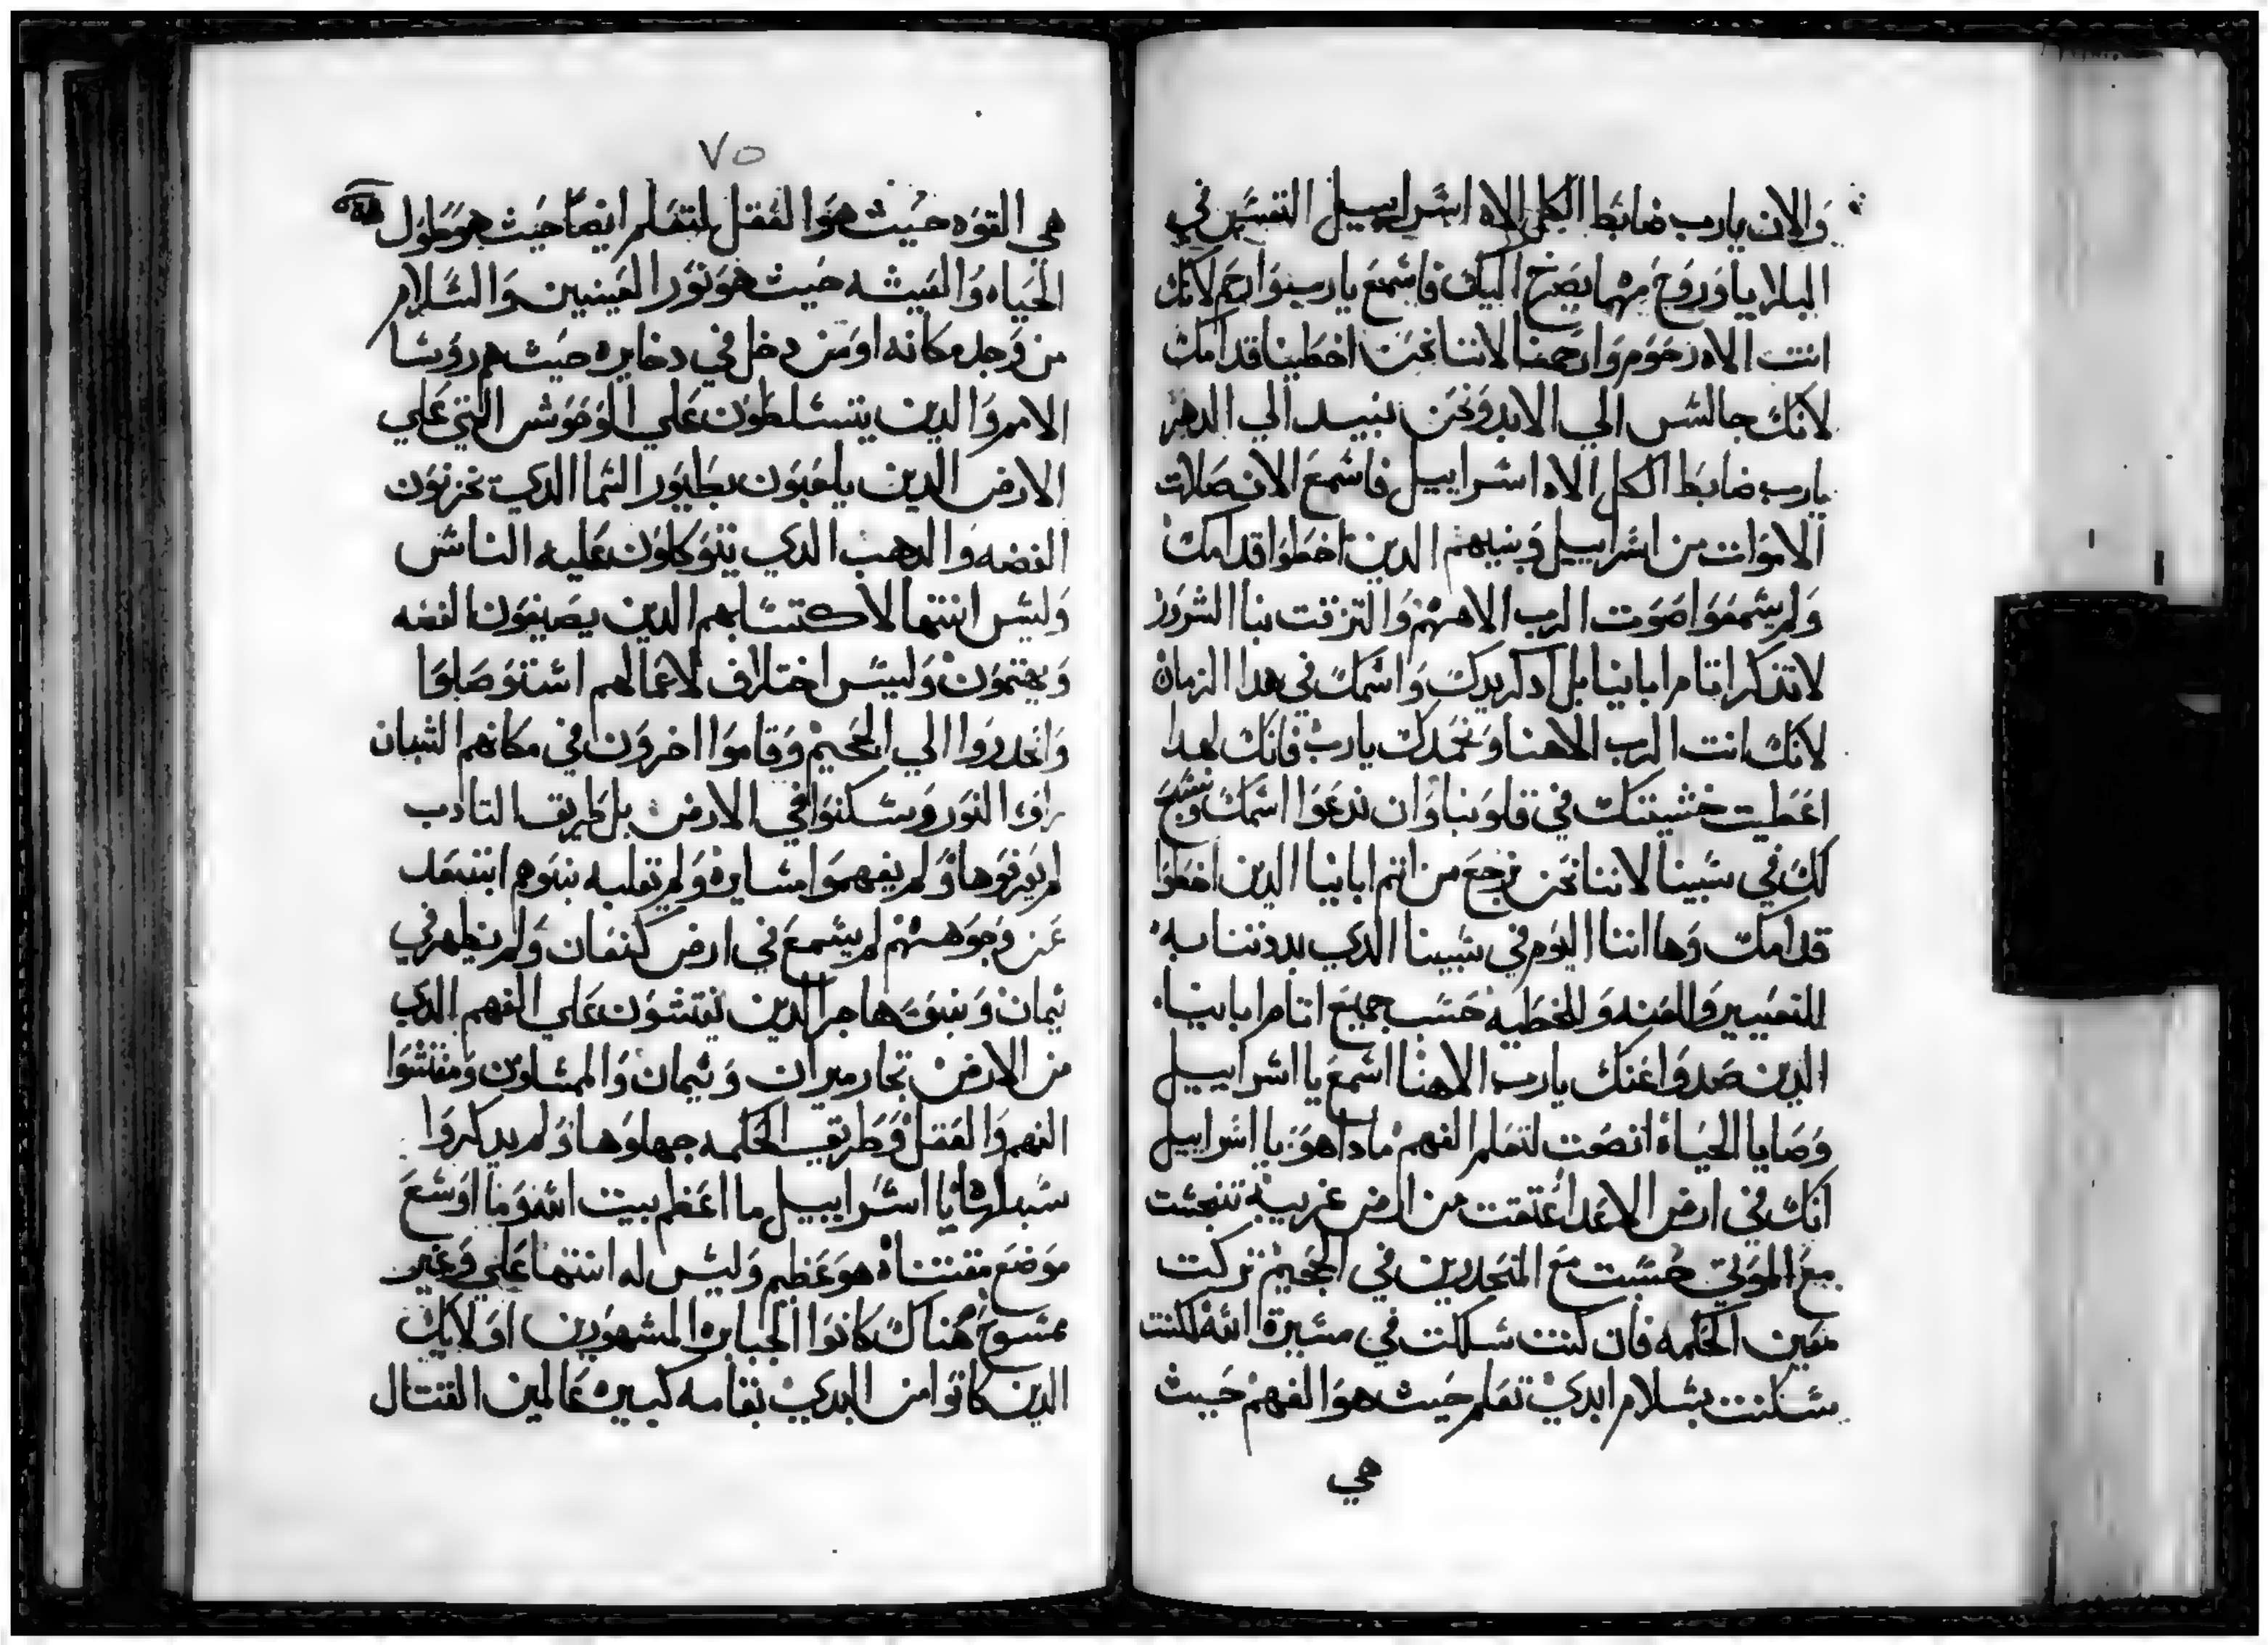 والان يارب ضابط الكل الاه اسراييل النفس في
البلايا وروح مهما يصرخ اليك فاسمع يارب وارحم لانك
انت الاه رحوم وارحمنا لاننا نحن اخطينا قدامك
لانك جالس الي الابد ونحن نبيد الي الدهر
يارب ضابط الكل الاه اسراييل فاسمع الان صلاة
الاموات من اسراييل وبنيهم الدين اخطوا قدامك
ولم يسمعوا صوت الرب الاههم والتزقت بنا الشرور
لا تذكر اتام اباينا بل ادكر يدك واسمك في هدا الزمان
لانك انت الرب الاهنا ونحمدك يارب فانك لهدا
اعطيت خشيتك في قلوبنا وان ندعوا اسمك ونسبح
لك في سبينا لاننا نحن نرجع من اتم اباينا الدين اخطوا
قدامك وها اننا اليوم في سبينا الدي بددتنا به
للتعيير واللعنه وللخطيه حسب جميع اتام اباينا
الدين صدوا عنك يارب الاهنا اسمع يا اسراييل
وصايا الحياة انصت لتعلم الفهم مادا هو يا اسراييل
انك في ارض الاعدا عتقت من ارض غريبة تنجست
مع الموتي حسبت مع المنحدرين في الجحيم تركت
معين الحكمه فان كنت سلكت في مسيرة الله لكنت
سكنت بسلام ابدي تعلم حيث هو الفهم حيث
هي
٧٥
هي القوه حيث هو العقل لتعلم ايضا حيث هو طول
الحياه والعيشه حيث هو نور العينين والسلام
من وجد مكانه او من دخل في دخايره حيث هم رووسا
الامم والدين يتسلطون علي الوحوش التي علي
الارض الدين يلعبون بطيور السما الدي يخزنون
الفضه والدهب الدي يتوكلون عليه الناس
وليس انتها لاكتسابهم الدين يصيغون الفضه
ويهتمون وليس اختلاف لاعمالهم استوصلوا
وانحدروا الي الجحيم وقاموا اخرون في مكانهم الشبان
راوا النور وسكنوا في الارض بل طريق التادب
لم يعرفوها ولم يفهموا مسايره ولم تقلبه بنوهم ابتعد
عن وجوههم لم يسمع في ارض كنعان ولم يظهر في
تيمان وبنو هاجر الدين يفتشون علي الفهم الدي
من الارض تجار ميران وتيمان والممثلون ومفتشوا
الفهم والعقل وطريق الحكمه جهلوها ولم يدكروا
سبلها يا اسراييل ما اعظم بيت الله وما اوسع
موضع مقتناه هو عظيم وليس له انتها علي وغير
ممسوح هناك كانوا الجبابره المشهورين اولايك
الدين كانوا من البدي بقامه كبيره عالمين القتال